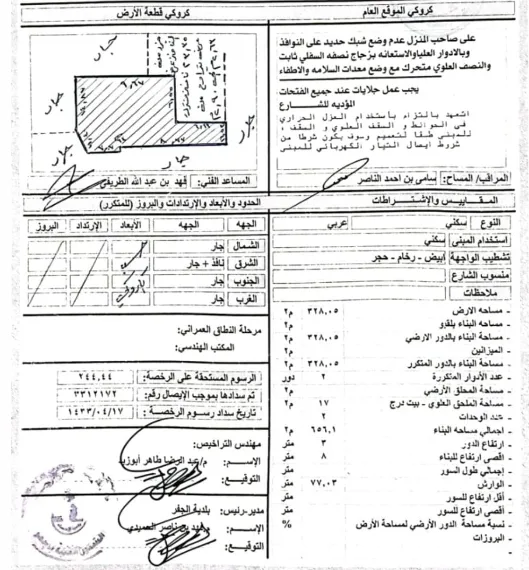 كروكي الموقع العام
كروكي قطعة الأرض
على صاحب المنزل عدم وضع شبك حديد على النوافذ
وبالادوار العليا والاستعانه بزجاج نصفه السفلي ثابت
والنصف العلوي متحرك مع وضع معدات السلامه والاطفاء
يجب عمل جلايات عند جميع الفتحات
المؤديه للشارع
اتعهد بالتزام باستخدام العزل الحراري
في الحوائط و السقف العلوي و السقف ،
للمبنى طبقا للتعميم وسوف يكون شرطا من
شروط ايصال التيار الكهربائي للمبنى
جار
جار
جار
المراقب/ المساح: سامي بن احمد الناصر
المساعد الفني: فهد بن عبد الله الطريفي
المقاييس والإشتراطات
النوع سكني عربي
استخدام المبنى سكني
تشطيب الواجهة ابيض - رخام - حجر
منسوب الشارع
ملاحظات
- مساحه الارض ٣٢٨,٠٥ م٢
- مساحة البناء بلقرو م٢
- مساحه البناء بالدور الارضي ٣٢٨,٠٥ م٢
- الميزانين م٢
- مساحة البناء بالدور المتكرر ٣٢٨,٠٥ م٢
- عدد الأدوار المتكررة ٢ دور
- مساحة الملحق الأرضي م٢
- مساحة الملحق العلوي - بيت درج ١٧ م٢
- عدد الوحدات ٢
- اجمالي مساحه البناء ٦٥٦,١ م٢
- ارتفاع الدور ٣ متر
- اقصى ارتفاع للبناء ٨ متر
- إجمالي طول السور متر
- الوارش ٧٧,٠٣ متر
- أقل ارتفاع للسور متر
- أقصى ارتفاع للسور متر
- نسبة مساحة الدور الأرضي لمساحة الأرض %
- البروزات
الحدود والأبعاد والإرتدادات والبروز (للمتكرر)
الجهه الجهه الأبعاد الإرتداد البروز
الشمال جار
الشرق نافذ + جار
الجنوب جار
الغرب جار
مرحلة النطاق العمراني:
المكتب الهندسي:
الرسوم المستحقة على الرخصة: ٢٤٤,٤٤
تم سدادها بموجب الإيصال رقم: ٣٣١٢١٧٢
تاريخ سداد رسوم الرخصة: ١٤٣٣/٠٤/١٧
مهندس التراخيص:
الإســم: م/عبد الرضا طاهر ابوزيد
التوقيع:
مدير-رئيس: بلدية الجفر
الإســم: م/فهد بن ناصر العميدي
التوقيع: